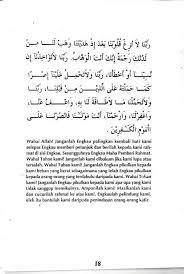 رَبَّنَا لَا تُزِغْ قُلُوبَنَا بَعْدَ إِذْ هَدَيْتَنَا وَهَبْ لَنَا مِنْ
لَدُنْكَ رَحْمَةً إِنَّكَ أَنْتَ الْوَهَّابُ. رَبَّنَا لَا تُؤَاخِذْنَا إِنْ
نَسِينَا أَوْ أَخْطَأْنَا، رَبَّنَا وَلَا تَحْمِلْ عَلَيْنَا إِصْرًا
كَمَا حَمَلْتَهُ عَلَى الَّذِينَ مِنْ قَبْلِنَا، رَبَّنَا
وَلَا تُحَمِّلْنَا مَا لَا طَاقَةَ لَنَا بِهِ وَاعْفُ عَنَّا وَاغْفِرْ
لَنَا وَارْحَمْنَا، أَنْتَ مَوْلَانَا فَانْصُرْنَا عَلَى
الْقَوْمِ الْكٰفِرِينَ
Wahai Allah! Janganlah Engkau palingkan kembali hati kami
selepas Engkau memberi petunjuk dan berilah kepada kami rah-
mat di sisi Engkau. Sesungguhnya Engkau Maha Pemberi Rahmat.
Wahai Tuhan kami! Janganlah Engkau pikulkan kami jika kami lupa atau
tersalah. Wahai Tuhan kami! Janganlah Engkau pikulkan kepada
kami apa yang Engkau telah pikulkan kepada orang yang
kami! Janganlah Engkau pikulkan kepada kami apa
tidak sanggup memikulnya. Ampunilah kami! Maafkanlah kami
dan cucurilah rahmat ke atas kami! Engkaulah pelindung kami,
oleh itu bantulah kami daripada penindasan orang-orang kafir.
18